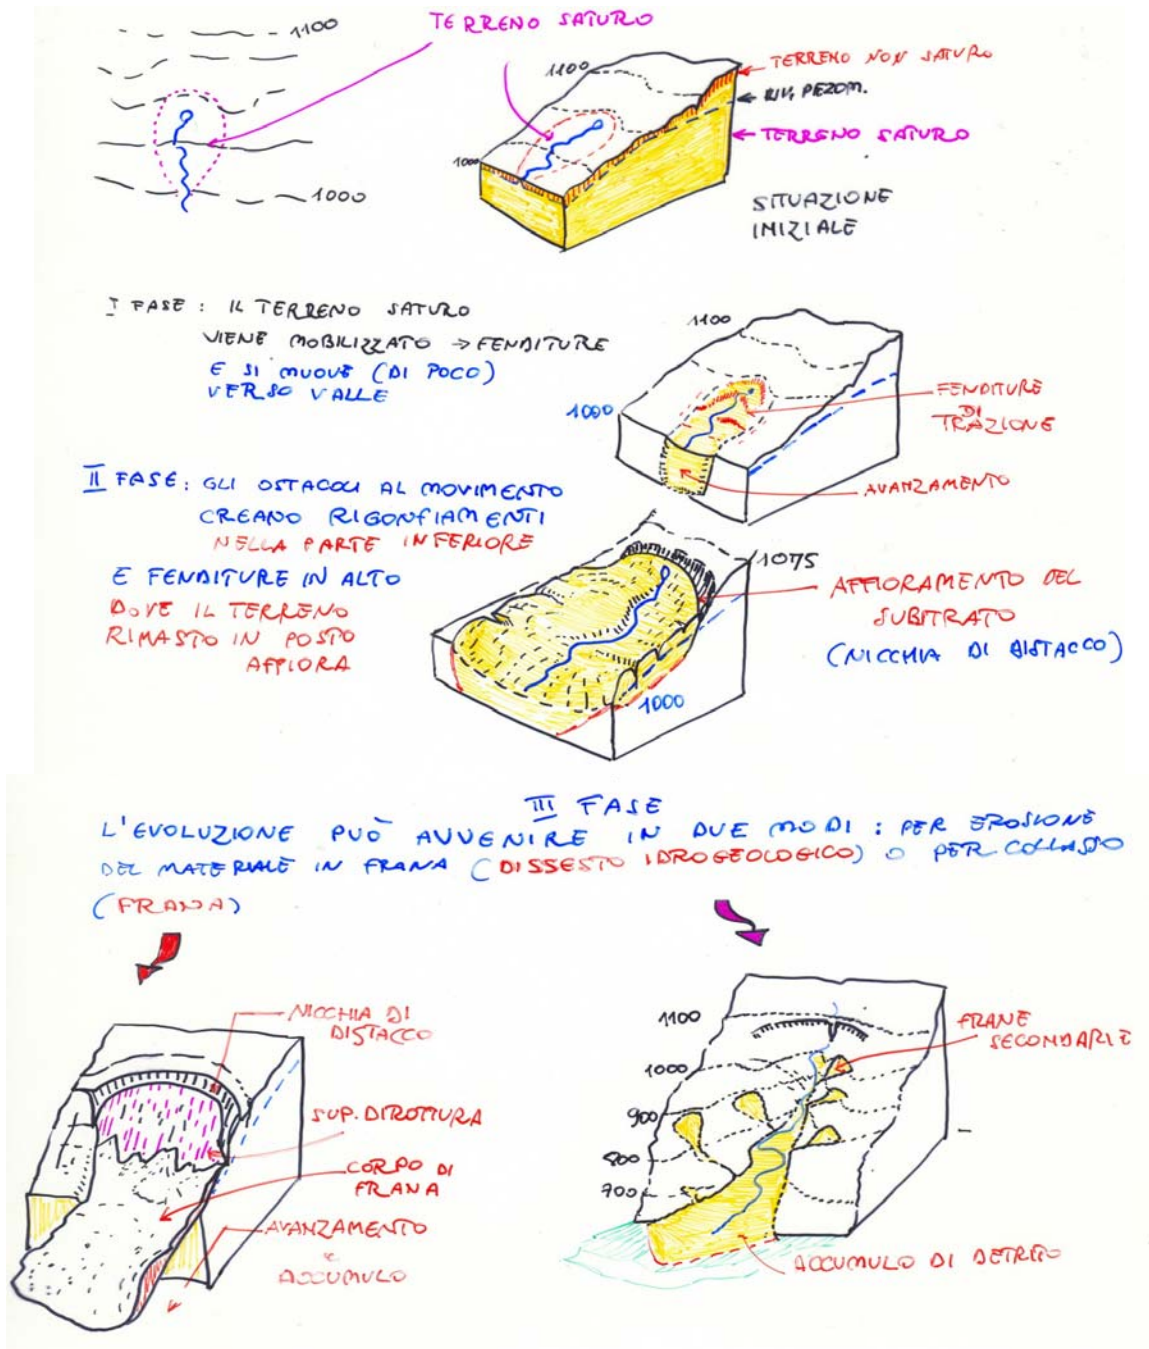 1100
TERRENO SATURO
1000
1100
TERRENO NON SATURO
LIV. PEZOM.
TERRENO SATURO
1000
SITUAZIONE
INIZIALE
I FASE : IL TERRENO SATURO
VIENE MOBILIZZATO → FENDITURE
E SI MUOVE (DI POCO)
VERSO VALLE
1100
1000
FENDITURE
DI
TRAZIONE
AVANZAMENTO
II FASE : GLI OSTACOLI AL MOVIMENTO
CREANO RIGONFIAMENTI
NELLA PARTE INFERIORE
E FENDITURE IN ALTO
DOVE IL TERRENO
RIMASTO IN POSTO
AFFIORA
1075
AFFIORAMENTO DEL
SUBITRATO
(NICCHIA DI DISTACCO)
1000
III FASE
L'EVOLUZIONE PUÒ AVVENIRE IN DUE MODI : PER EROSIONE
DEL MATERIALE IN FRANA (DISSESTO IDROGEOLOGICO) O PER COLLASSO
(FRANA)
NICCHIA DI
DISTACCO
SUP. DI ROTTURA
CORPO DI
FRANA
AVANZAMENTO
e
ACCUMULO
1100
1000
900
800
700
FRANE
SECONDARIE
ACCUMULO DI DETRITO